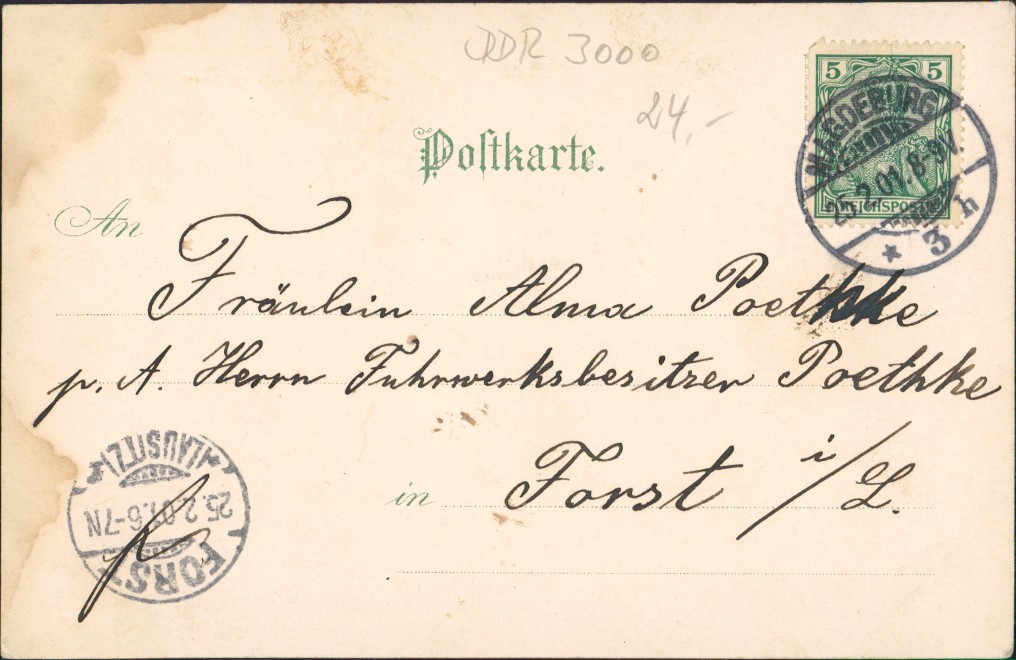 DDR 3000
24,-
5 5
REICHSPOST
MAGDEBURG
25.2.01.8-9V.
* 3 h
Postkarte.
An
Fräulein Alma Poethke
p. A. Herrn Fuhrwerksbesitzer Poethke
in Forst i/L.
FORST
25.2.01.6-7N
*(LAUSITZ)*